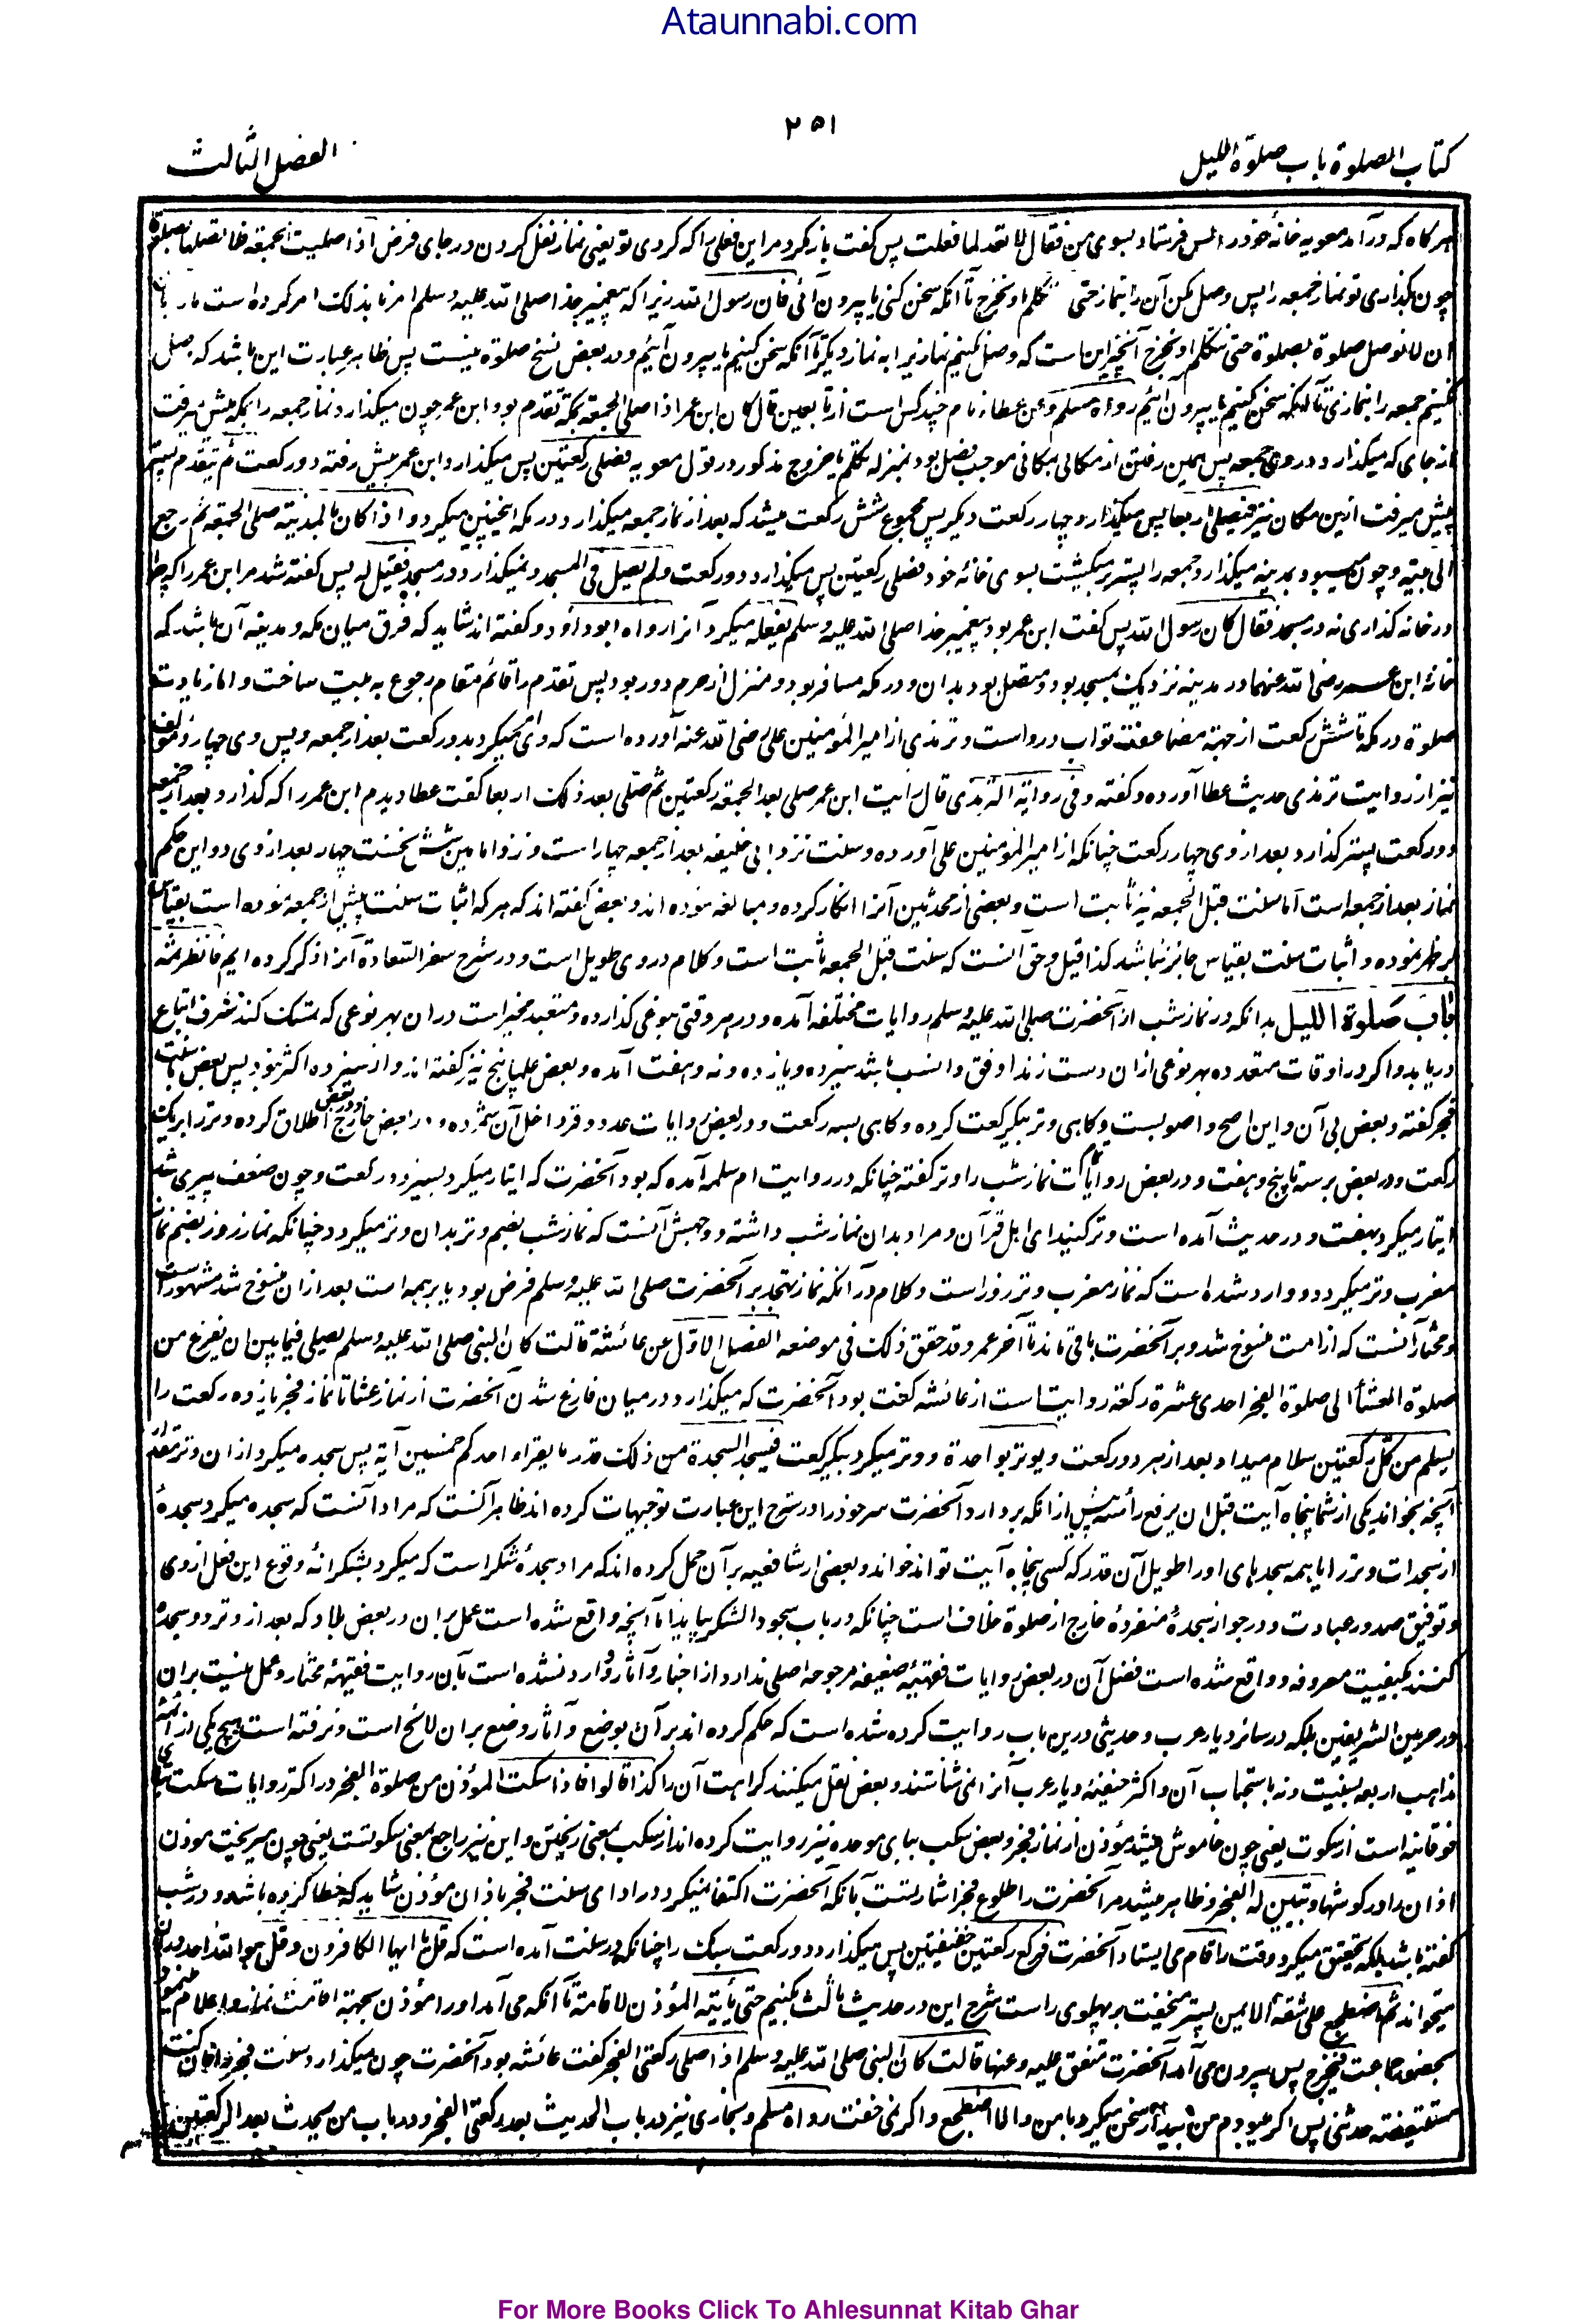 Ataunnabi.com
۲۵۱
کتاب الصلوة باب صلوة اللیل
الفصل الثالث
هرگاه که درآمد معویه خانهٔ خود را ارسل فرستاد بسوی من فقال لا تعد لما فعلت پس گفت بازگرد مر این فعلی را که کردی تو یعنی نماز نفل کردن در جای فرض اذا صلیت الجمعة فلا تصلها بصلوة
چون بگذاری تو نماز جمعه را پس وصل مکن آن را بنماز حتی تکلم او تخرج تا آنکه سخن کنی یا بیرون آئی فان رسول الله زیرا که پیغمبر خدا صلی الله علیه وسلم امرنا بذلک امر کرده است ما را باین
ان لا نوصل صلوة بصلوة حتی نتکلم او نخرج آنچه این است که وصل نکنیم نماز را به نماز دیگر تا آنکه سخن کنیم یا بیرون آئیم و در بعض نسخ صلوة نیست پس ظاهر عبارت این باشد که وصل
نکنیم جمعه را بنمازی تا آنکه سخن کنیم یا بیرون آئیم رواه مسلم وعن عطاء نام چند کس است از تابعین قال کان ابن عمر اذا صلی الجمعة بمکة تقدم بود ابن عمر چون میگذارد نماز جمعه را بمکه پیش میرفت
از جای که میگذارد در وی جمعه پس همین رفتن از مکانی بمکانی موجب فصل بود بمنزله تکلم یا خروج مذکور در قول معویه فصلی رکعتین پس میگذارد ابن عمر پیش رفته دو رکعت ثم یتقدم پستر
پیش میرفت ازین مکان نیز فیصلی اربعا پس میگذارد چهار رکعت دیگر پس مجموع شش رکعت میشد که بعد از نماز جمعه میگذارد و در مکه اینچنین میکرد و اذا کان بالمدینة صلی الجمعة ثم رجع
الی بیته و چون میبود بمدینه میگذارد جمعه را پستر برمیگشت بسوی خانه خود فصلی رکعتین پس میگذارد دو رکعت ولم یصل فی المسجد و نمیگذارد در مسجد فقیل له پس گفته شد مر ابن عمر را که چرا
در خانه گذاری نه در مسجد فقال کان رسول الله پس گفت ابن عمر بود پیغمبر خدا صلی الله علیه وسلم یفعله میکرد آنرا رواه ابو داؤد و گفته اند شاید که فرق میان مکه و مدینه آن باشد که
خانهٔ ابن عمر رضی الله عنهما در مدینه نزدیک بمسجد بود و متصل بود بدان و در مکه مسافر بود و منزل از حرم دور بود پس تقدم را قائم مقام رجوع به بیت ساخت و اما زیادت
صلوة در مکه تا شش رکعت از جهة مضاعفت ثواب درو است و ترمذی از امیر المؤمنین علی رضی الله عنه آورده است که وی میکرد بدو رکعت بعد از جمعه و پس وی چهار و مؤلف
نیز از روایت ترمذی حدیث عطا آورده و گفته و فی روایة الترمذی قال رأیت ابن عمر صلی بعد الجمعة رکعتین ثم صلی بعد ذلک اربعا گفت عطا دیدم ابن عمر را که گذارد بعد از جمعه
دو رکعت پستر گذارد بعد از وی چهار رکعت چنانکه از امیر المؤمنین علی آورده و سنت نزد ابی حنیفه بعد از جمعه چهار است و نزد امامین شش نخست چهار بعد از وی دو و این حکم
نماز بعد از جمعه است اما سنت قبل الجمعه نیز ثابت است و بعضی از محدثین آنرا انکار کرده و مبالغه نموده اند و بعض گفته اند که هر که اثبات سنت پیش از جمعه نموده است بقیاس
بر ظهر نموده و اثبات سنت بقیاس جائز نباشد کذا قیل و حق آنست که سنت قبل الجمعه ثابت است و کلام در وی طویل است و در شرح سفر السعادة آنرا ذکر کرده ایم فانظر ثمه
باب صلوة اللیل بدانکه در نماز شب از آنحضرت صلی الله علیه وسلم روایات مختلفه آمده و در هر وقتی بنوعی گذارده و متعبد مخیر است در ان بهر نوعی که تمسک کند شرف اتباع
دریابد و اگر در اوقات متعدده بهر نوعی ازان دست زند اوفق و انسب باشد سیزده و یازده و نه و هفت آمده و بعض علما پنج نیز گفته اند و از سیزده اکثر نبود پس بعض با سنت
فجر گفته و بعض بی آن و این اصح و اصوبست و گاهی وتر بیک رکعت کرده و گاهی بسه رکعت و در بعض روایات عدد وتر داخل آن شمرده و در بعض خارج و در بعض اطلاق کرده وتر را بر یک
رکعت و در بعض بر سه تا پنج و هفت و در بعض روایات نماز شب را وتر گفته چنانکه در روایت ام سلمه آمده که بود آنحضرت که ایتار میکرد بسیزده رکعت و چون ضعف پیری شد
ایتار میکرد بهفت و در حدیث آمده است وتر کنید ای اهل قرآن و مراد بدان نماز شب داشته و وجهش آنست که نماز شب بضم وتر بدان وتر میگردد چنانکه نماز روز بضم نماز
مغرب وتر میگردد و وارد شده است که نماز مغرب وتر روز است و کلام در آنکه نماز تهجد بر آنحضرت صلی الله علیه وسلم فرض بود یا بر همه امت بعد ازان منسوخ شد مشهور است
و مختار آنست که از امت منسوخ شد و بر آنحضرت باقی ماند تا آخر عمر وقد حقق ذلک فی موضعه الفصل الاول عن عائشة قالت کان النبی صلی الله علیه وسلم یصلی فیما بین ان یفرغ من
صلوة العشاء الی صلوة الفجر احدی عشرة رکعة روایت است از عائشه گفت بود آنحضرت که میگذارد در میان فارغ شدن آنحضرت از نماز عشا تا نماز فجر یازده رکعت را
یسلم من کل رکعتین سلام میداد بعد از هر دو رکعت ویوتر بواحدة و وتر میکرد بیک رکعت فیسجد السجدة من ذلک قدر ما یقراء احدکم خمسین آیة پس سجده میکرد ازان وتر مقدار
آنچه بخواند یکی از شما پنجاه آیت قبل ان یرفع رأسه پیش از آنکه بردارد آنحضرت سر خود را در شرح این عبارت توجیهات کرده اند ظاهر آنست که مراد آنست که سجده میکرد سجدهٔ
از سجدات وتر را یا همه سجدهای او را طویل آن قدر که کسی پنجاه آیت تواند خواند و بعضی از شافعیه بر آن حمل کرده اند که مراد سجدهٔ شکر است که میکرد بشکرانهٔ وقوع این فعل از وی
و توفیق صدور عبادت و در جواز سجدهٔ منفرده خارج از صلوة خلاف است چنانکه در باب سجود الشکر بیاید اما آنچه واقع شده است عمل بران در بعض بلاد که بعد از وتر دو سجده
کنند بکیفیت معروفه و واقع شده است فضل آن در بعض روایات فقهیه ضعیفه مرجوحه اصلی ندارد از اخبار و آثار و وارد نشده است بآن روایت فقهیهٔ مختار و عمل نیست بران
در حرمین الشریفین بلکه در سائر دیار عرب و حدیثی درین باب روایت کرده شده است که حکم کرده اند بر آن بوضع و آثار وضع بران لائح است و نرفته است هیچ یکی از ائمه
مذاهب اربعه بسنیت و نه باستحباب آن و اکثر حنفیهٔ دیار عرب آنرا نمی شناسند و بعض نقل میکنند کراهت آن را کذا قالوا فاذا سکت المؤذن من صلوة الفجر در اکثر روایات سکت بتای
فوقانیه است از سکوت یعنی چون خاموش میشد مؤذن از نماز فجر و بعض سکب ببای موحده نیز روایت کرده اند از سکب بمعنی ریختن و این نیز راجع بمعنی سکوتست یعنی چون میریخت موذن
اذان را در گوشها و تبین له الفجر و ظاهر میشد مر آنحضرت را طلوع فجر اشارتست بآنکه آنحضرت اکتفا نمیکرد در ادای سنت فجر باذان مؤذن شاید که خطا کرده باشد و در شب
گفته باشد بلکه تحقیق میکرد وقت را قام می ایستاد آنحضرت فرکع رکعتین خفیفتین پس میگذارد دو رکعت سبک را چنانکه در سنت آمده است که قل یا ایها الکافرون وقل هو الله احد دران
میخواند ثم اضطجع علی شقه الایمن پستر میخفت بر پهلوی راست شرح این در حدیث ثالث بکنیم حتی یأتیه المؤذن للاقامة تا آنکه می آمد او را مؤذن بجهة اقامت نماز و اعلام
بحضور جماعت فیخرج پس بیرون می آمد آنحضرت متفق علیه وعنها قالت کان النبی صلی الله علیه وسلم اذا صلی رکعتی الفجر گفت عائشه بود آنحضرت چون میگذارد سنت فجر فان کنت
مستیقظة حدثنی پس اگر میبودم من بیدار سخن میکرد با من والا اضطجع و اگرنی خفت رواه مسلم و بخاری نیز در باب الحدیث بعد رکعتی الفجر و در باب من تحدث بعد الرکعتین
For More Books Click To Ahlesunnat Kitab Ghar